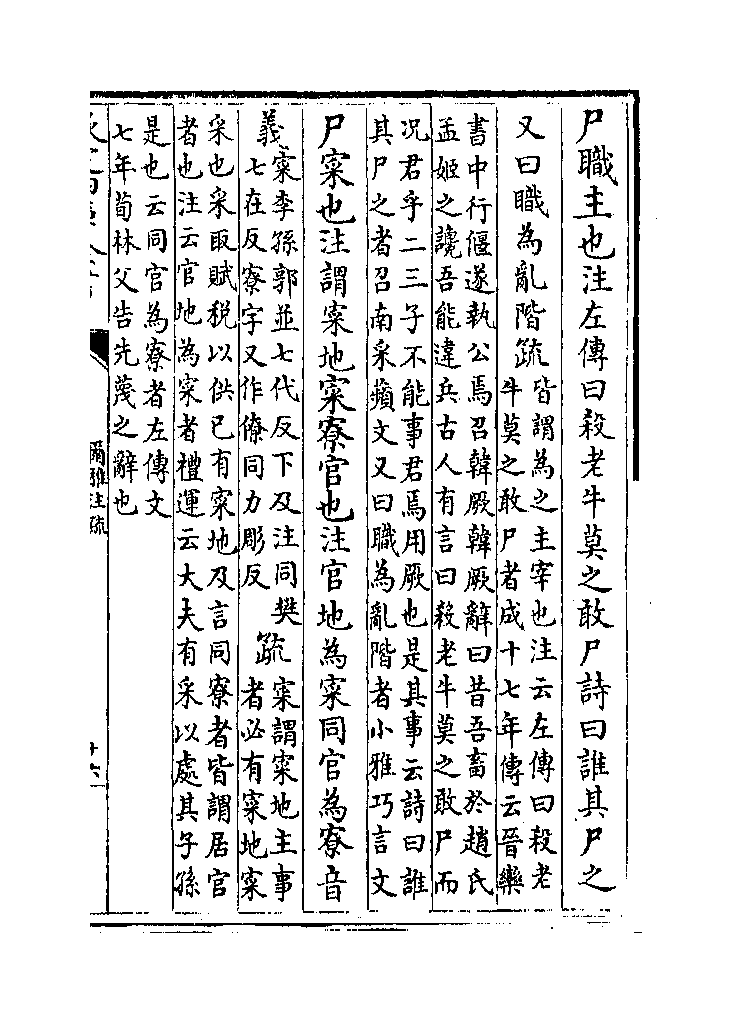 尸職主也注左傳曰殺老牛莫之敢尸詩曰誰其尸之
又曰職為亂階疏
皆謂為之主宰也注云左傳曰殺老
牛莫之敢尸者成十七年傳云晉欒
書中行偃遂執公焉召韓厥韓厥辭曰昔吾畜於趙氏
孟姬之讒吾能違兵古人有言曰殺老牛莫之敢尸而
況君乎二三子不能事君焉用厥也是其事云詩曰誰
其尸之者召南采蘋文又曰職為亂階者小雅巧言文
尸寀也注謂寀地寀寮官也注官地為寀同官為寮音
義
寀李孫郭並七代反下及注同樊
七在反寮字又作僚同力彫反
疏
寀謂寀地主事
者必有寀地寀
采也采取賦税以供已有寀地及言同寮者皆謂居官
者也注云官地為寀者禮運云大夫有采以處其子孫
是也云同官為寮者左傳文
七年荀林父告先蔑之辭也
爾雅注疏
十六